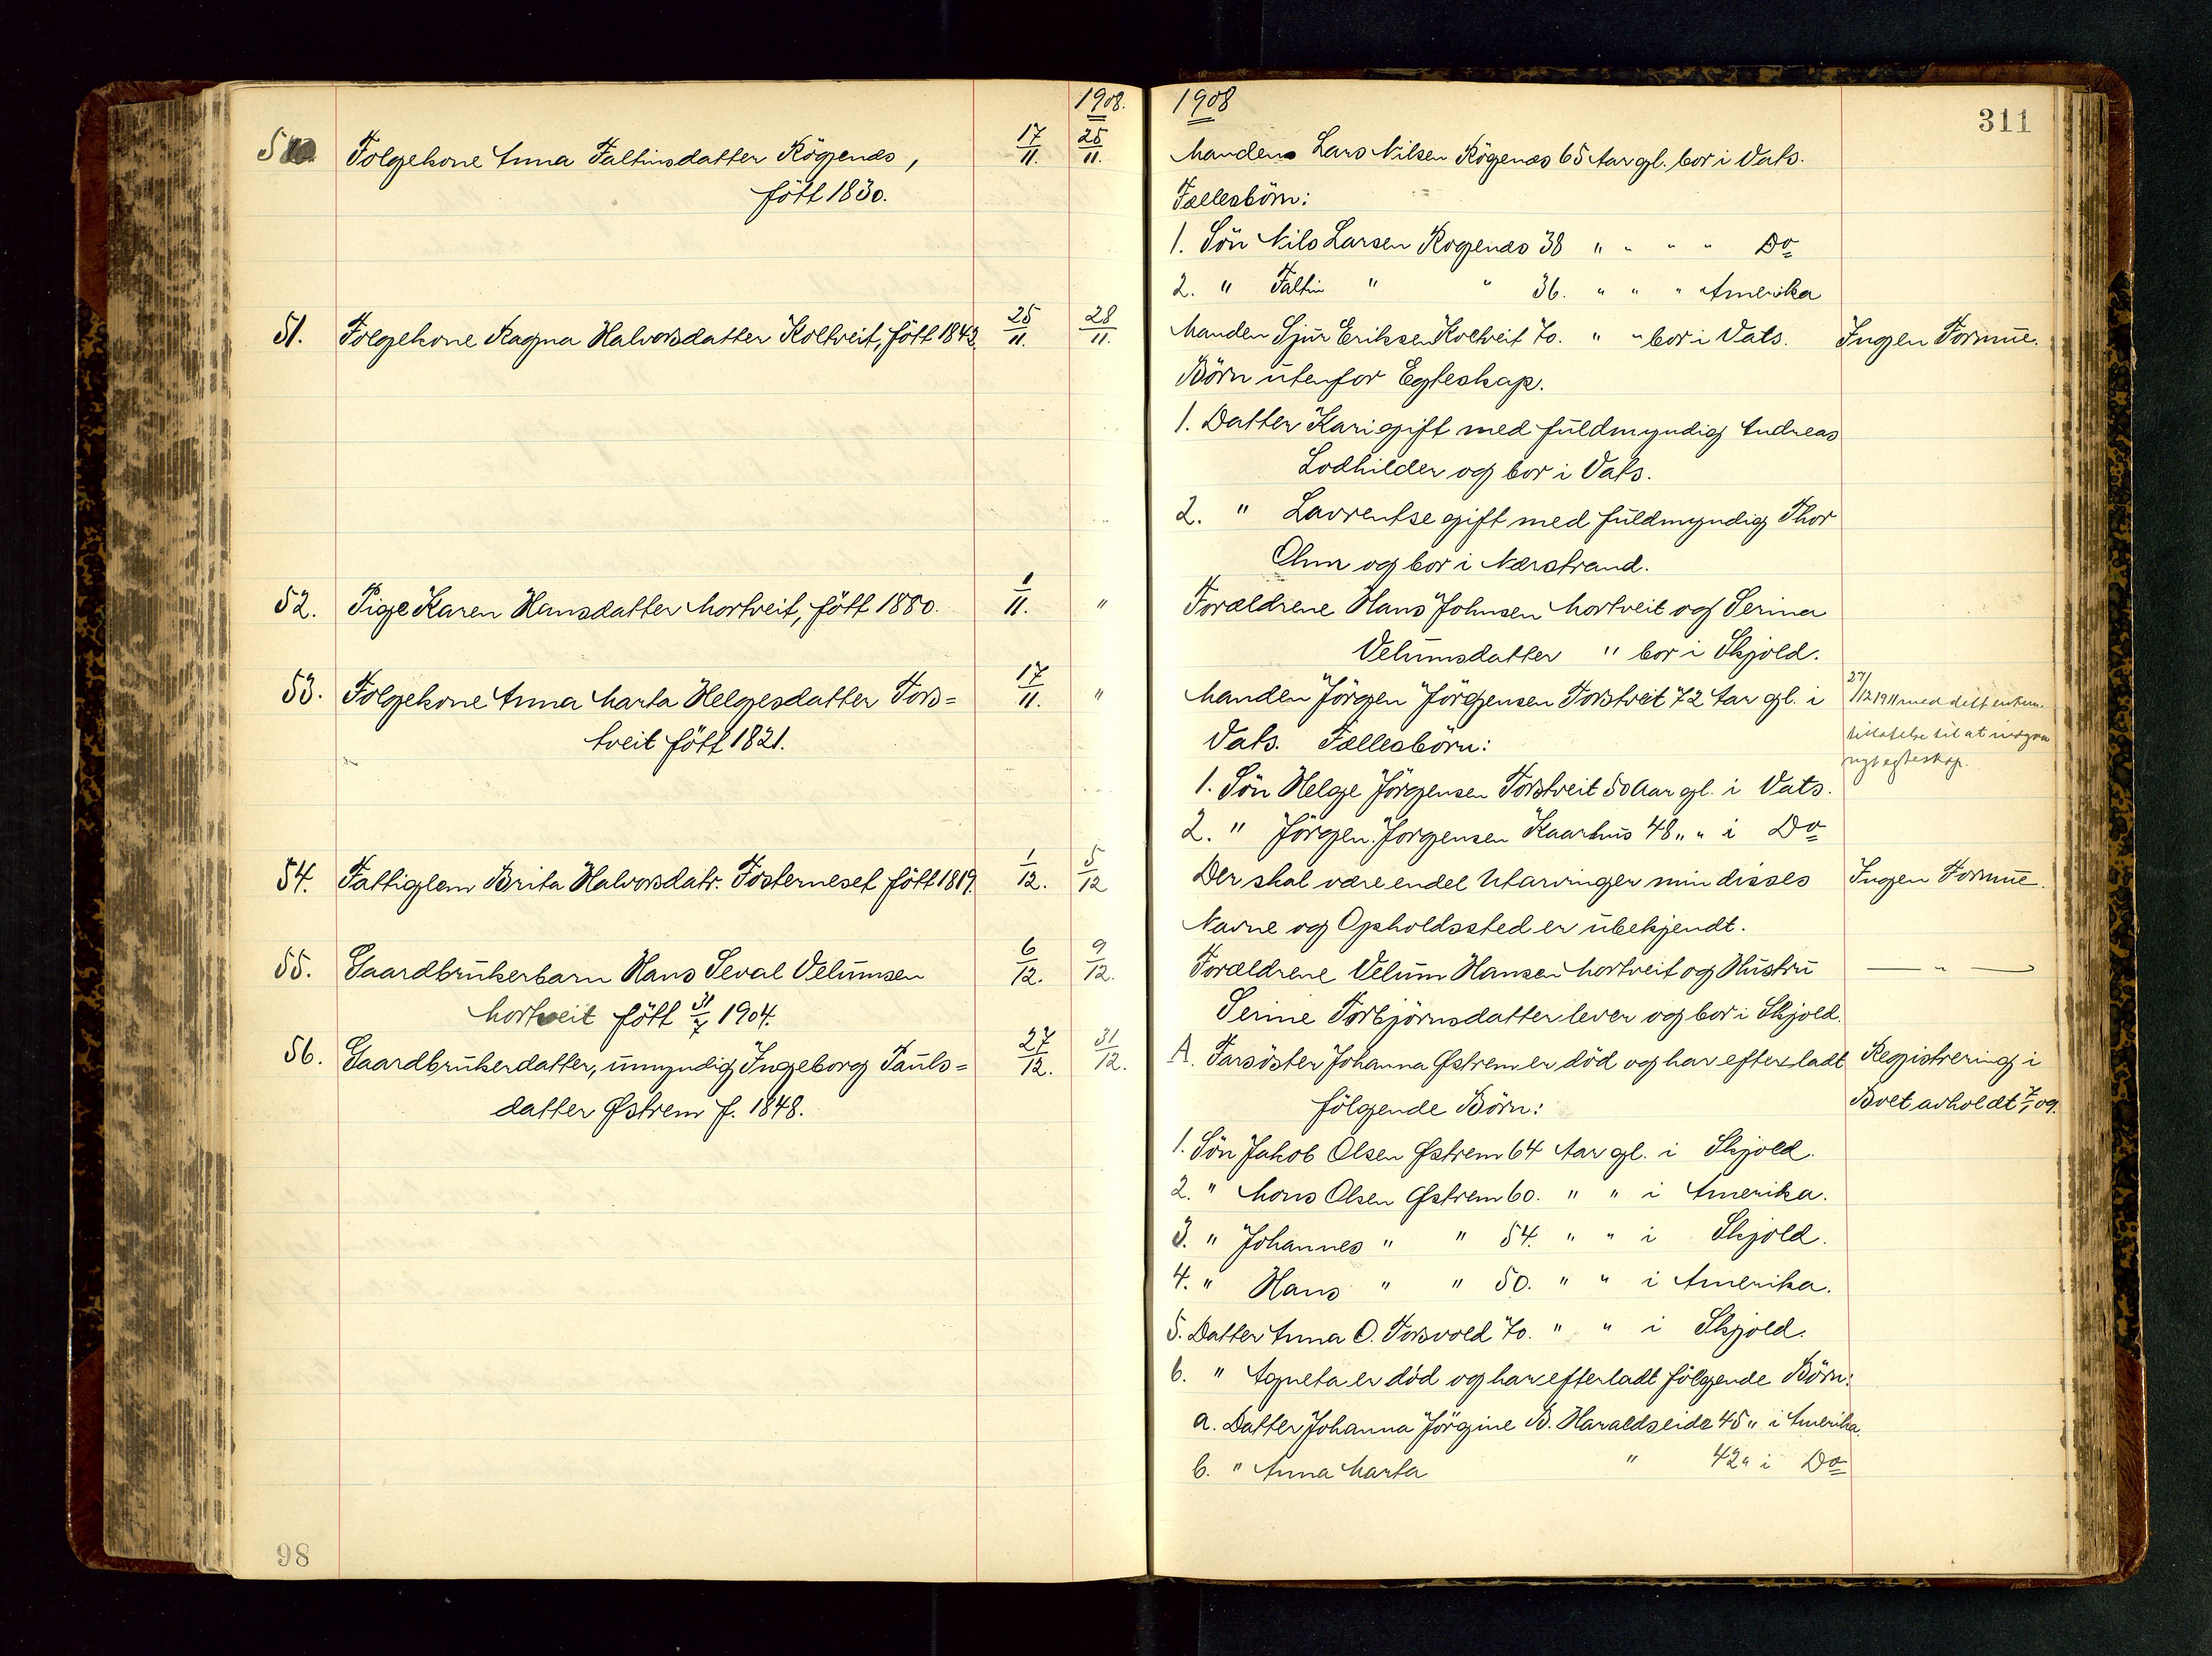 1908.
50. Folgekone Anna Faltinsdatter Rögenes, 17/11. 25/11.
fött 1830.
51. Folgekone Ragna Halvorsdatter Koltveit, fött 1843. 25/11. 28/11.
52. Pige Karen Hansdatter Mortveit, fött 1880. 1/11. "
53. Folgekone Anna Marta Helgesdatter Tors=17/11. "
tveit fött 1821.
54. Fattiglem Brita Halvorsdatr. Fosterneset fött 1819. 1/12. 5/12
55. Gaardbrukerbarn Hans Seval Velumsen 6/12. 9/12.
Mortveit fött 31/7 1904.
56. Gaardbrukerdatter, umyndig Ingeborg Pauls= 27/12. 31/12.
datter Østrem f. 1848.
98
1908
311
Manden Lars Nilsen Rögenes 65 Aar gl. bor i Vats.
Fællesbörn:
1. Sön Nils Larsen Rogenes 38 " " " " Do
2. " Faltin " " 36. " " " Amerika
Manden Sjur Eriksen Koltveit 70. " " bor i Vats. Ingen Formue.
Börn utenfor Egteskap.
1. Datter Kari gift med fuldmyndig Andreas
Lodhilder og bor i Vats.
2. " Lavrentse gift med fuldmyndig Thor
Ohm og bor i Nærstrand.
Forældrene Hans Johnsen Mortveit og Serina
Velumsdatter " bor i Skjold.
Manden Jörgen Jörgensen Torstveit 72 Aar gl. i
27/12 1911 med delt enkem.
Vats. Fællesbörn:
tillatelse til at indgaa
nyt egteskap.
1. Sön Helge Jörgensen Torstveit 50 Aar gl. i Vats.
2. " Jörgen Jorgensen Kaarhus 48 " " i Do
Der skal være endel Utarvinger min disses Ingen Formue.
Navne og Opholdssted er ubekjendt.
Forældrene Velum Hansen Mortveit og Hustru — " —
Serine Torbjörnsdatter lever og bor i Skjold.
A. Farsöster Johanna Østrem er död og har efterladt Registrering i
følgende Börn: Boet avholdt 7/1 09.
1. Sön Jakob Olsen Østrem 64 Aar gl. i Skjold.
2. " Mons Olsen Østrem 60. " " i Amerika.
3. " Johannes " " 54. " " i Skjold.
4. " Hans " " 50. " " i Amerika.
5. Datter Anna O. Forsvold 70. " " i Skjold.
6. " Agneta er död og har efterladt fölgende Börn:
a. Datter Johanna Jörgine B. Haraldseide 45 " i Amerika.
b. " Anna Marta " 42 " i Do